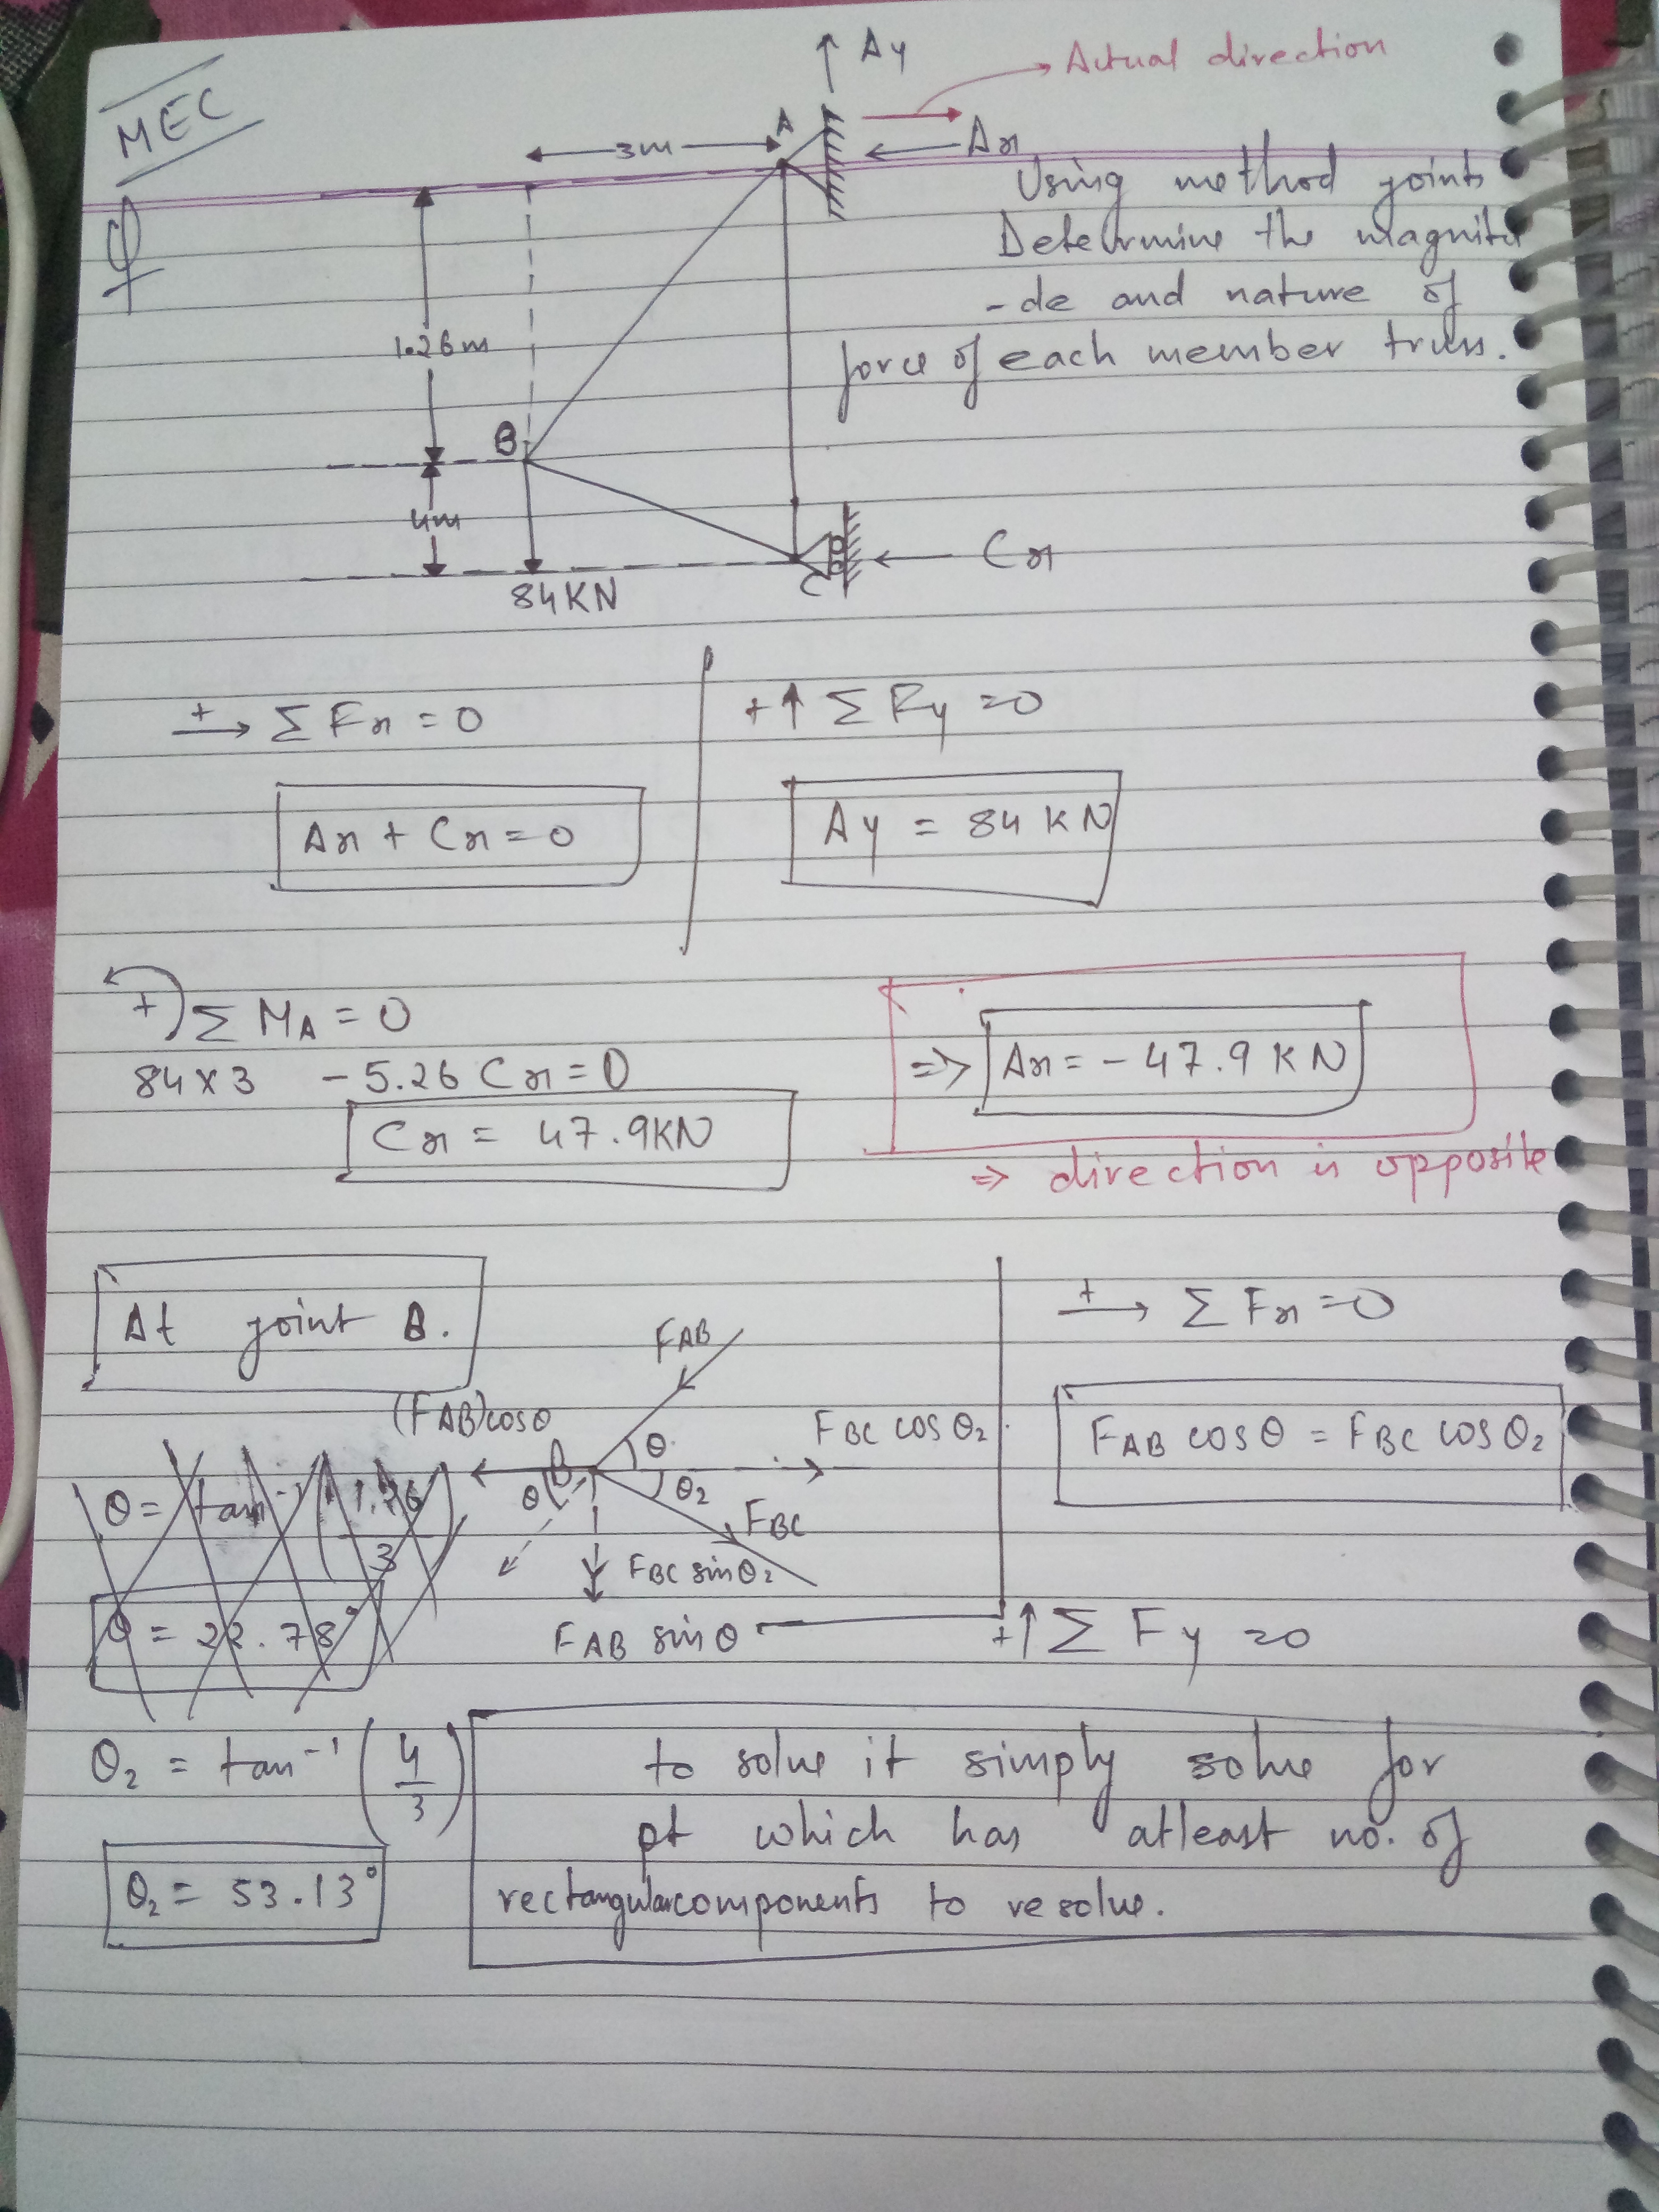 MEC
Ay
Actual direction
A
3m
Ax
Q
Using method joints
Determine the magnitu
-de and nature of
force of each member truss.
1.26m
B
4m
84KN
C
Cx
+→ ΣFx = 0
+↑ ΣFy = 0
Ax + Cx = 0
Ay = 84 KN
+) ΣMA = 0
84 x 3 - 5.26 Cx = 0
⇒ Ax = - 47.9 KN
Cx = 47.9KN
⇒ direction is opposite
At joint B.
+→ ΣFx = 0
FAB
(FAB)cosθ
FBC cosθ2
FAB cosθ = FBC cosθ2
B
θ
θ
θ2
θ = tan-1 (1.26/3)
FBC
FBC sinθ2
θ = 22.78°
FAB sinθ
+↑ ΣFy = 0
θ2 = tan-1 (4/3)
to solve it simply solve for
pt which has atleast no. of
θ2 = 53.13°
rectangularcomponents to resolve.